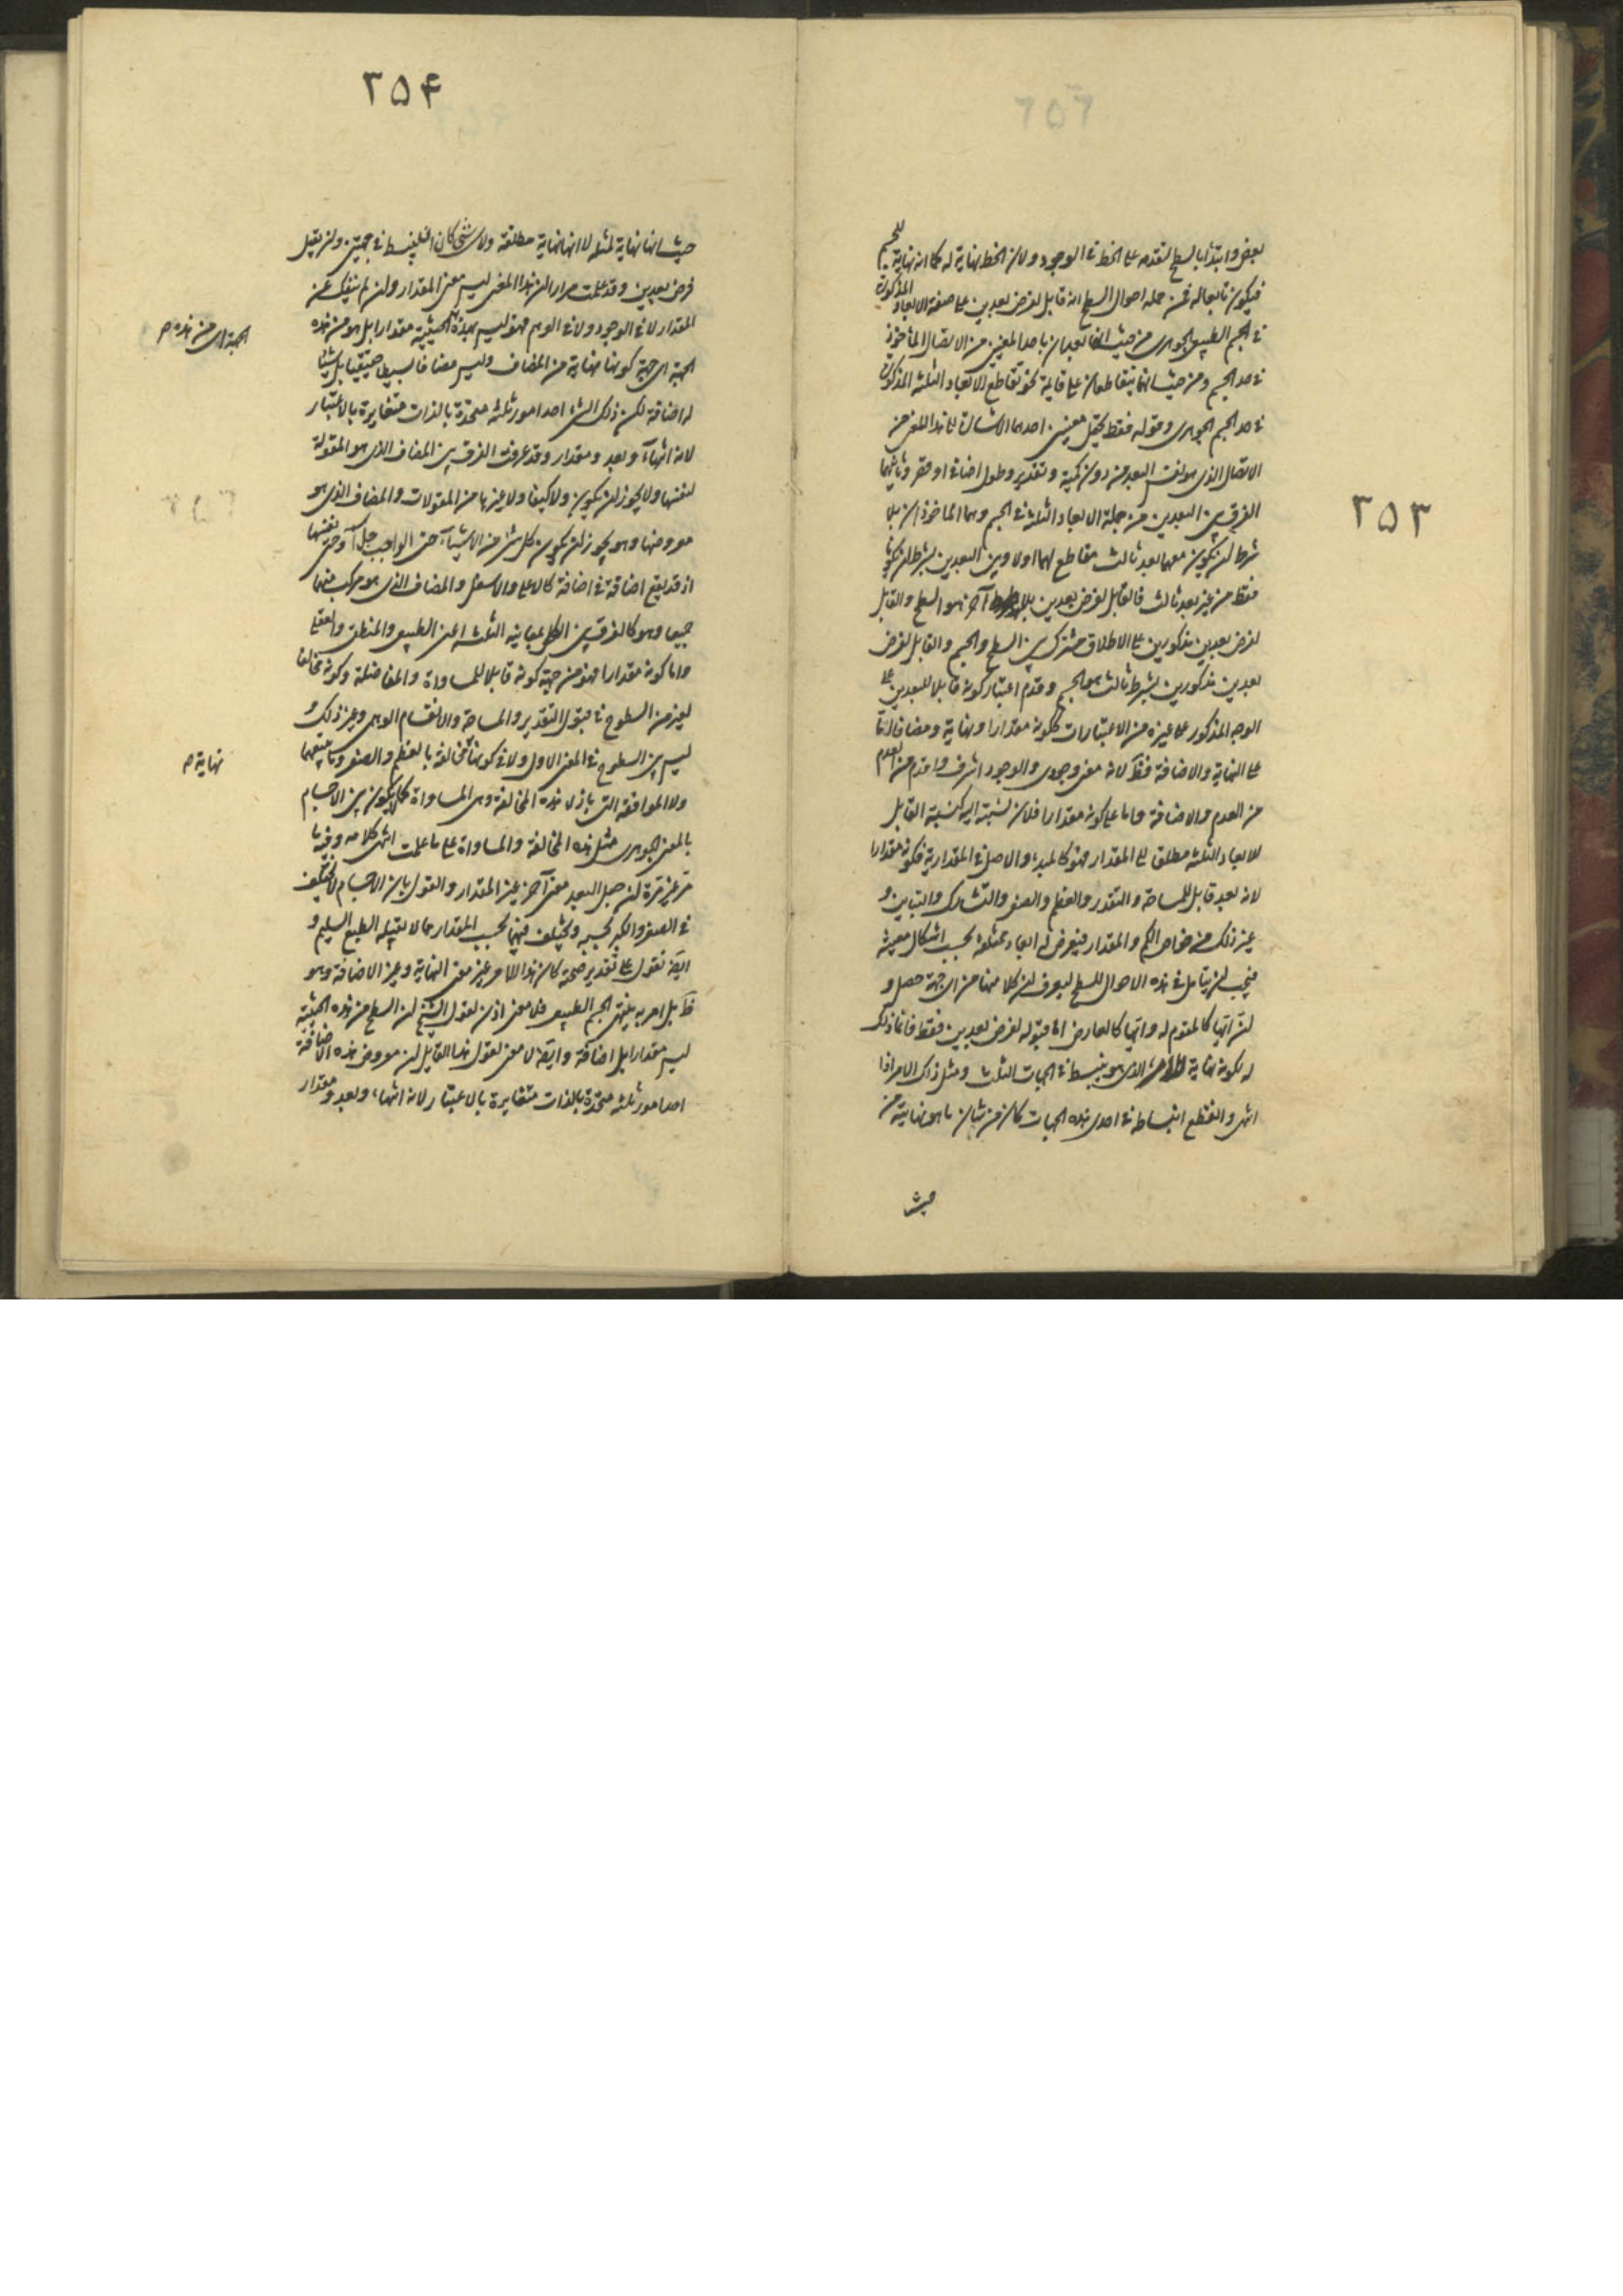 ٢٥٣
بعض وابتدأ بالسطح لتقدمه على الخط فى الوجود ولان الخط نهاية له كما انه نهاية للجسم
فيكون تابعا له فمن جملة احوال السطح انه قابل لفرض بعدين على صفة الابعاد المذكورة
فى الجسم الطبيعى الجوهرى من حيث انهما بعدان باحد المعنيين من الاتصال الماخوذ
فى حد الجسم ومن حيث انهما يتقاطعان على قايمة نحو تقاطع الابعاد الثلثة المذكورة
فى حد الجسم الجوهرى وقوله فقط يحتمل معنيين احدهما الاشارة الى هذا المعنى من
الاتصال الذى هو نفس البعد من دون كمية وتقدير وطول اضافى او قصر وثانيهما
الفرق بين البعدين من جملة الابعاد الثلثة فى الجسم وهما الماخوذان بلا
شرط ان يكون معهما بعد ثالث مقاطع لهما اولا وبين البعدين بشرط ان يكونا
فقط من غير بعد ثالث فالقابل لفرض بعدين بلا آخر هو السطح والقابل
لفرض بعدين مذكورين على الاطلاق مشترك بين السطح والجسم والقابل لفرض
بعدين مذكورين بشرط ثالث هو الجسم وقدم اعتبار كونه قابلا للبعدين على
الوجه المذكور على غيره من الاعتبارات ككونه مقدارا ونهاية ومضافا اما
على النهاية والاضافة فظ لانه معنى وجودى والوجود اشرف واقدم من العدم
من العدم والاضافة واما على كونه مقدارا فلان نسبته اليه كنسبة القابل
للابعاد الثلثة مطلقا الى المقدار فهو كالمبدء والاصل فى المقدارية فكونه مقدارا
لانه بعد قابل للمساحة والتقدر والعظم والصغر والتشارك والتباين و
غير ذلك من خواص الكم والمقدار فيعرض له ابعاد مختلفة بحسب اشكال معينة
فيجب ان يتامل فى هذه الاحوال للسطح ليعرف ان كلا منها من اى جهة حصل و
ان ايها كالمقوم له وايها كالعارض اما قبوله لفرض بعدين فقط فانما ذلك
له لكونه نهاية الذى هو منبسط فى الجهات الثلث ومثل ذلك الامر اذا
انتهى وانقطع انبساطه فى احدى هذه الجهات كان من شان ما هو نهايته من
حيث
٢٥۴
حيث انها نهاية لمثله لا انها نهاية مطلقة ولاى شئ كان ان ينبسط فى جهتين وان يقبل
فرض بعدين وقد علمت مرارا ان هذا المعنى ليس معنى المقدار وان لم ينفك عن
المقدار لا فى الوجود ولا فى الوهم فهو ليس بهذه الحيثية مقدارا بل هو من هذه
الجهة اى من هذه م
الجهة اى جهة كونها نهاية من المضاف وليس مضافا بسيطا حقيقيا بل شيئا
له اضافة لكن ذلك الشئ احد امور ثلثة متحدة بالذات متغايرة بالاعتبار
لانه انتهاء وبعد ومقدار وقد عرفت الفرق بين المضاف الذى هو المقولة
لنفسها ولا يجوز ان يكون ولا كيفا ولا غيرها من المقولات والمضاف الذى هو
معروضها وهو يجوز ان يكون كل شئ من الاشياء حتى الواجب جل اه وحتى نفسها
اذ قد يقع اضافة فى اضافة كالاعلى والاسفل والمضاف الذى هو مركب منهما
جميعا وهو كالفرق بين الكلى بمعانيه الثلثة اعنى الطبيعى والمنطقى والعقلى
واما كونه مقدارا فهو من جهة كونه قابلا للمساواة والمفاضلة وكونه مخالفا
لغيره من السطوح فى قبول التقدير والمساحة والانقسام الوهمى وغير ذلك و
ليس بين السطوح فى المعنى الاول ولا فى كونها مخالفة بالعظم والصغر وما يتبعهما
نهاية م
ولا الموافقة التى بازاء هذه المخالفة وهى المساواة كما لا يكون بين الاجسام
بالمعنى الجوهرى مثل هذه المخالفة والمساواة على ما علمت انتهى كلامه وفيه ما
مر غير مرة ان جعل البعد معنى آخر غير المقدار والقول بان الاجسام لا تختلف
فى الصغر والكبر بحسبه وتختلف فيهما بحسب المقدار مما لا يقبله الطبع السليم و
ايضا نقول على تقدير صحته كان هذا الامر غير معنى النهاية وغير الاضافة وهو
ظ بل امر به ينتهى الجسم الطبيعى فلا معنى اذن لقول الشيخ ان السطح من هذه الحيثية
ليس مقدارا بل اضافة وايضا لا معنى لقول هذا القايل ان معروض هذه الاضافة
احد امور ثلثة متحدة بالذات متغايرة بالاعتبار لانه انتهاء وبعد ومقدار